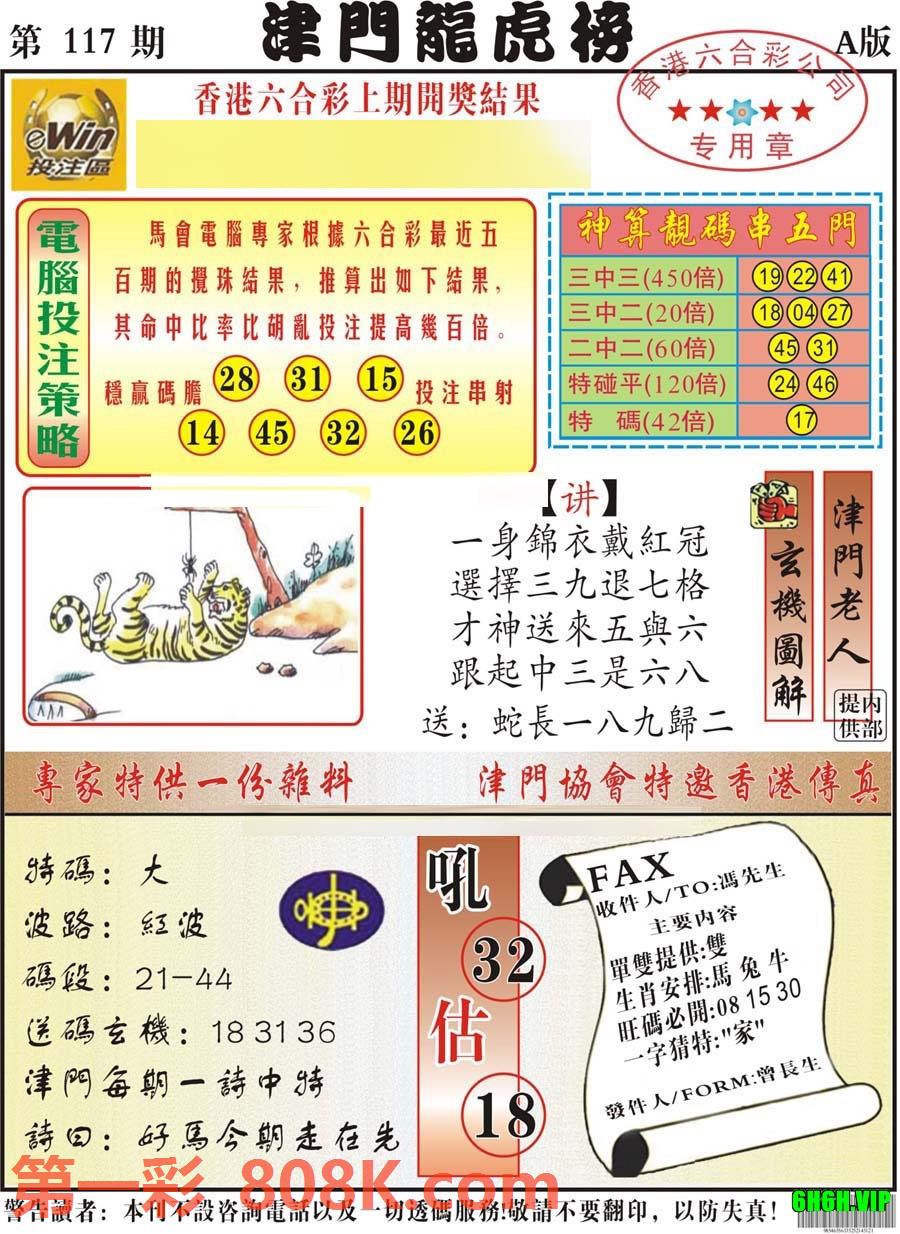 第 117 期
津門龍虎榜
A版
香港六合彩公司
专用章
eWin
投注區
香港六合彩上期開獎結果
電腦投注策略
馬會電腦專家根據六合彩最近五
百期的攪珠結果，推算出如下結果，
其命中比率比胡亂投注提高幾百倍。
穩贏碼膽 28 31 15 投注串射
14 45 32 26
神算靚碼串五門
三中三(450倍) 19 22 41
三中二(20倍) 18 04 27
二中二(60倍) 45 31
特碰平(120倍) 24 46
特 碼(42倍) 17
【讲】
一身錦衣戴紅冠
選擇三九退七格
才神送來五與六
跟起中三是六八
送：蛇長一八九歸二
玄機圖解
津門老人
內部提供
專家特供一份雜料
津門協會特邀香港傳真
特碼：大
波路：紅波
碼段：21-44
送碼玄機：18 31 36
津門每期一詩中特
詩曰：好馬今期走在先
吼
32
估
18
FAX
收件人/TO:馮先生
主要內容
單雙提供:雙
生肖安排:馬 兔 牛
旺碼必開:08 15 30
一字猜特:"家"
發件人/FORM:曾長生
第一彩 808K.com
警告讀者：本刊不設咨詢電話以及一切透碼服務!敬請不要翻印，以防失真！
6H6H.VIP